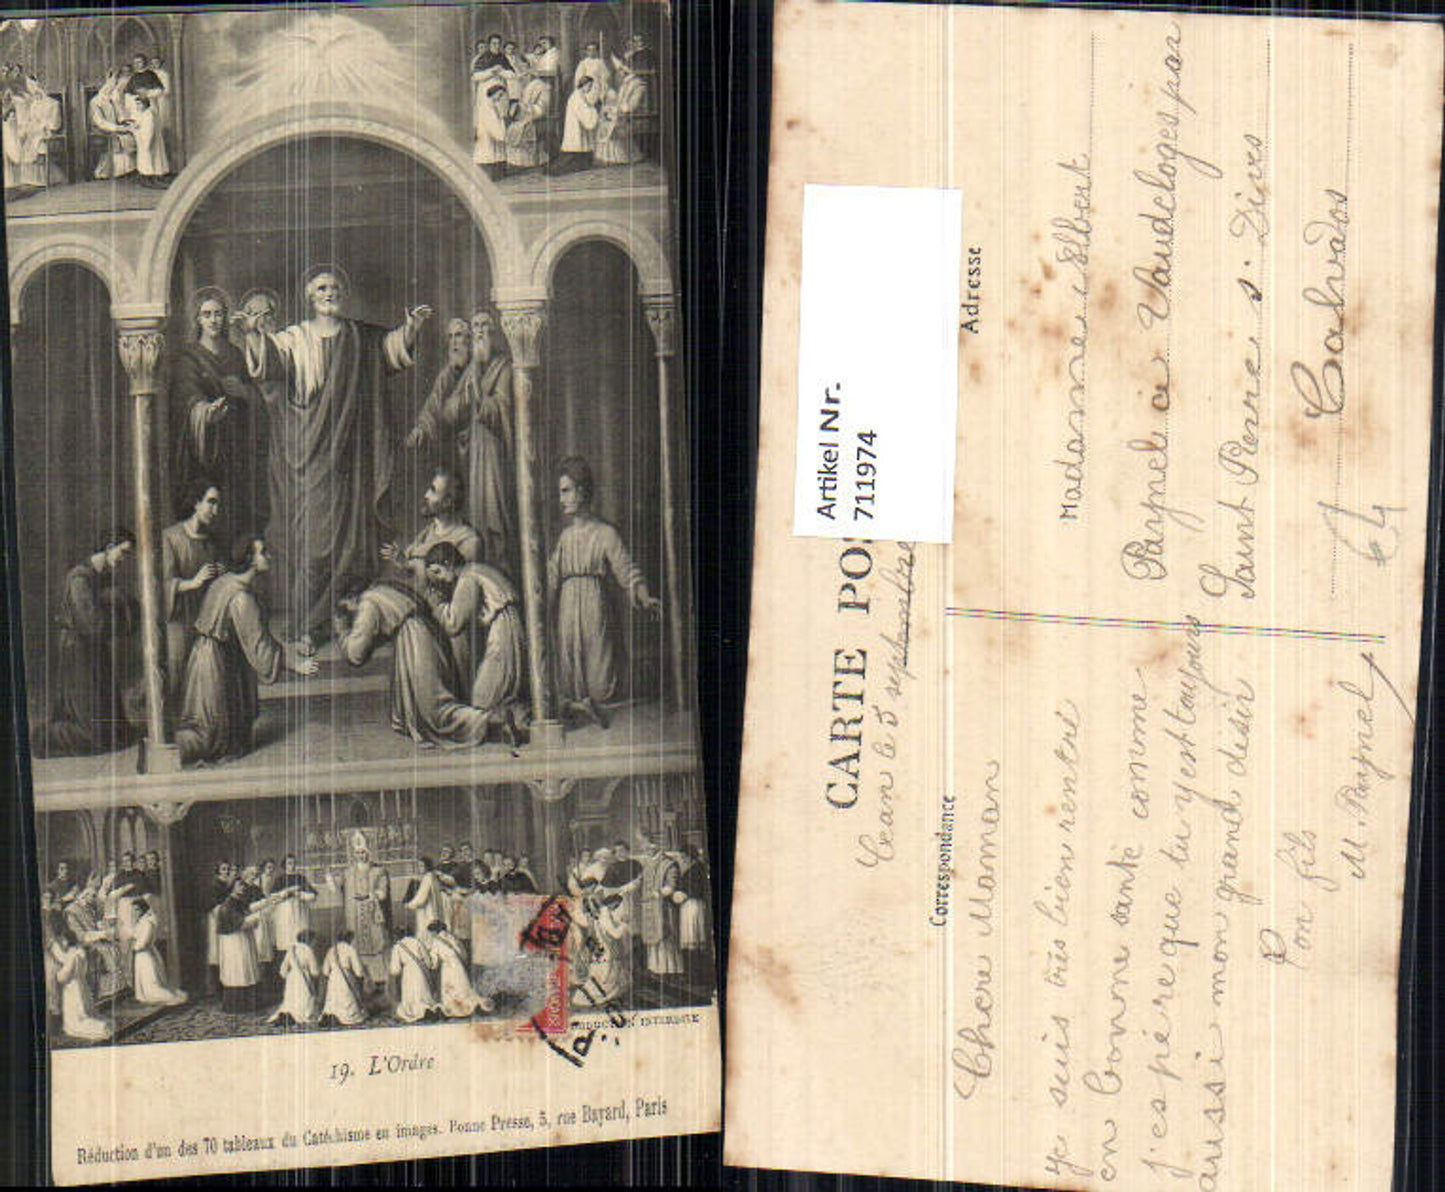 REPRODUCTION INTERDITE
19. L'Ordre
Réduction d'un des 70 tableaux du Catéchisme en images. Bonne Presse, 5, rue Bayard, Paris
Artikel Nr.
711974
CARTE PO
le 5 septembre
Correspondance
Adresse
Chere Maman
je suis très bien rentré
en bonne santé comme
j'espère que tu y est toujours
aussi mon grand désir
Ton fils
M. Paynel
Madame Elbert
Paynel a Vaudeloges par
Saint Pierre s. Dives
Calvados